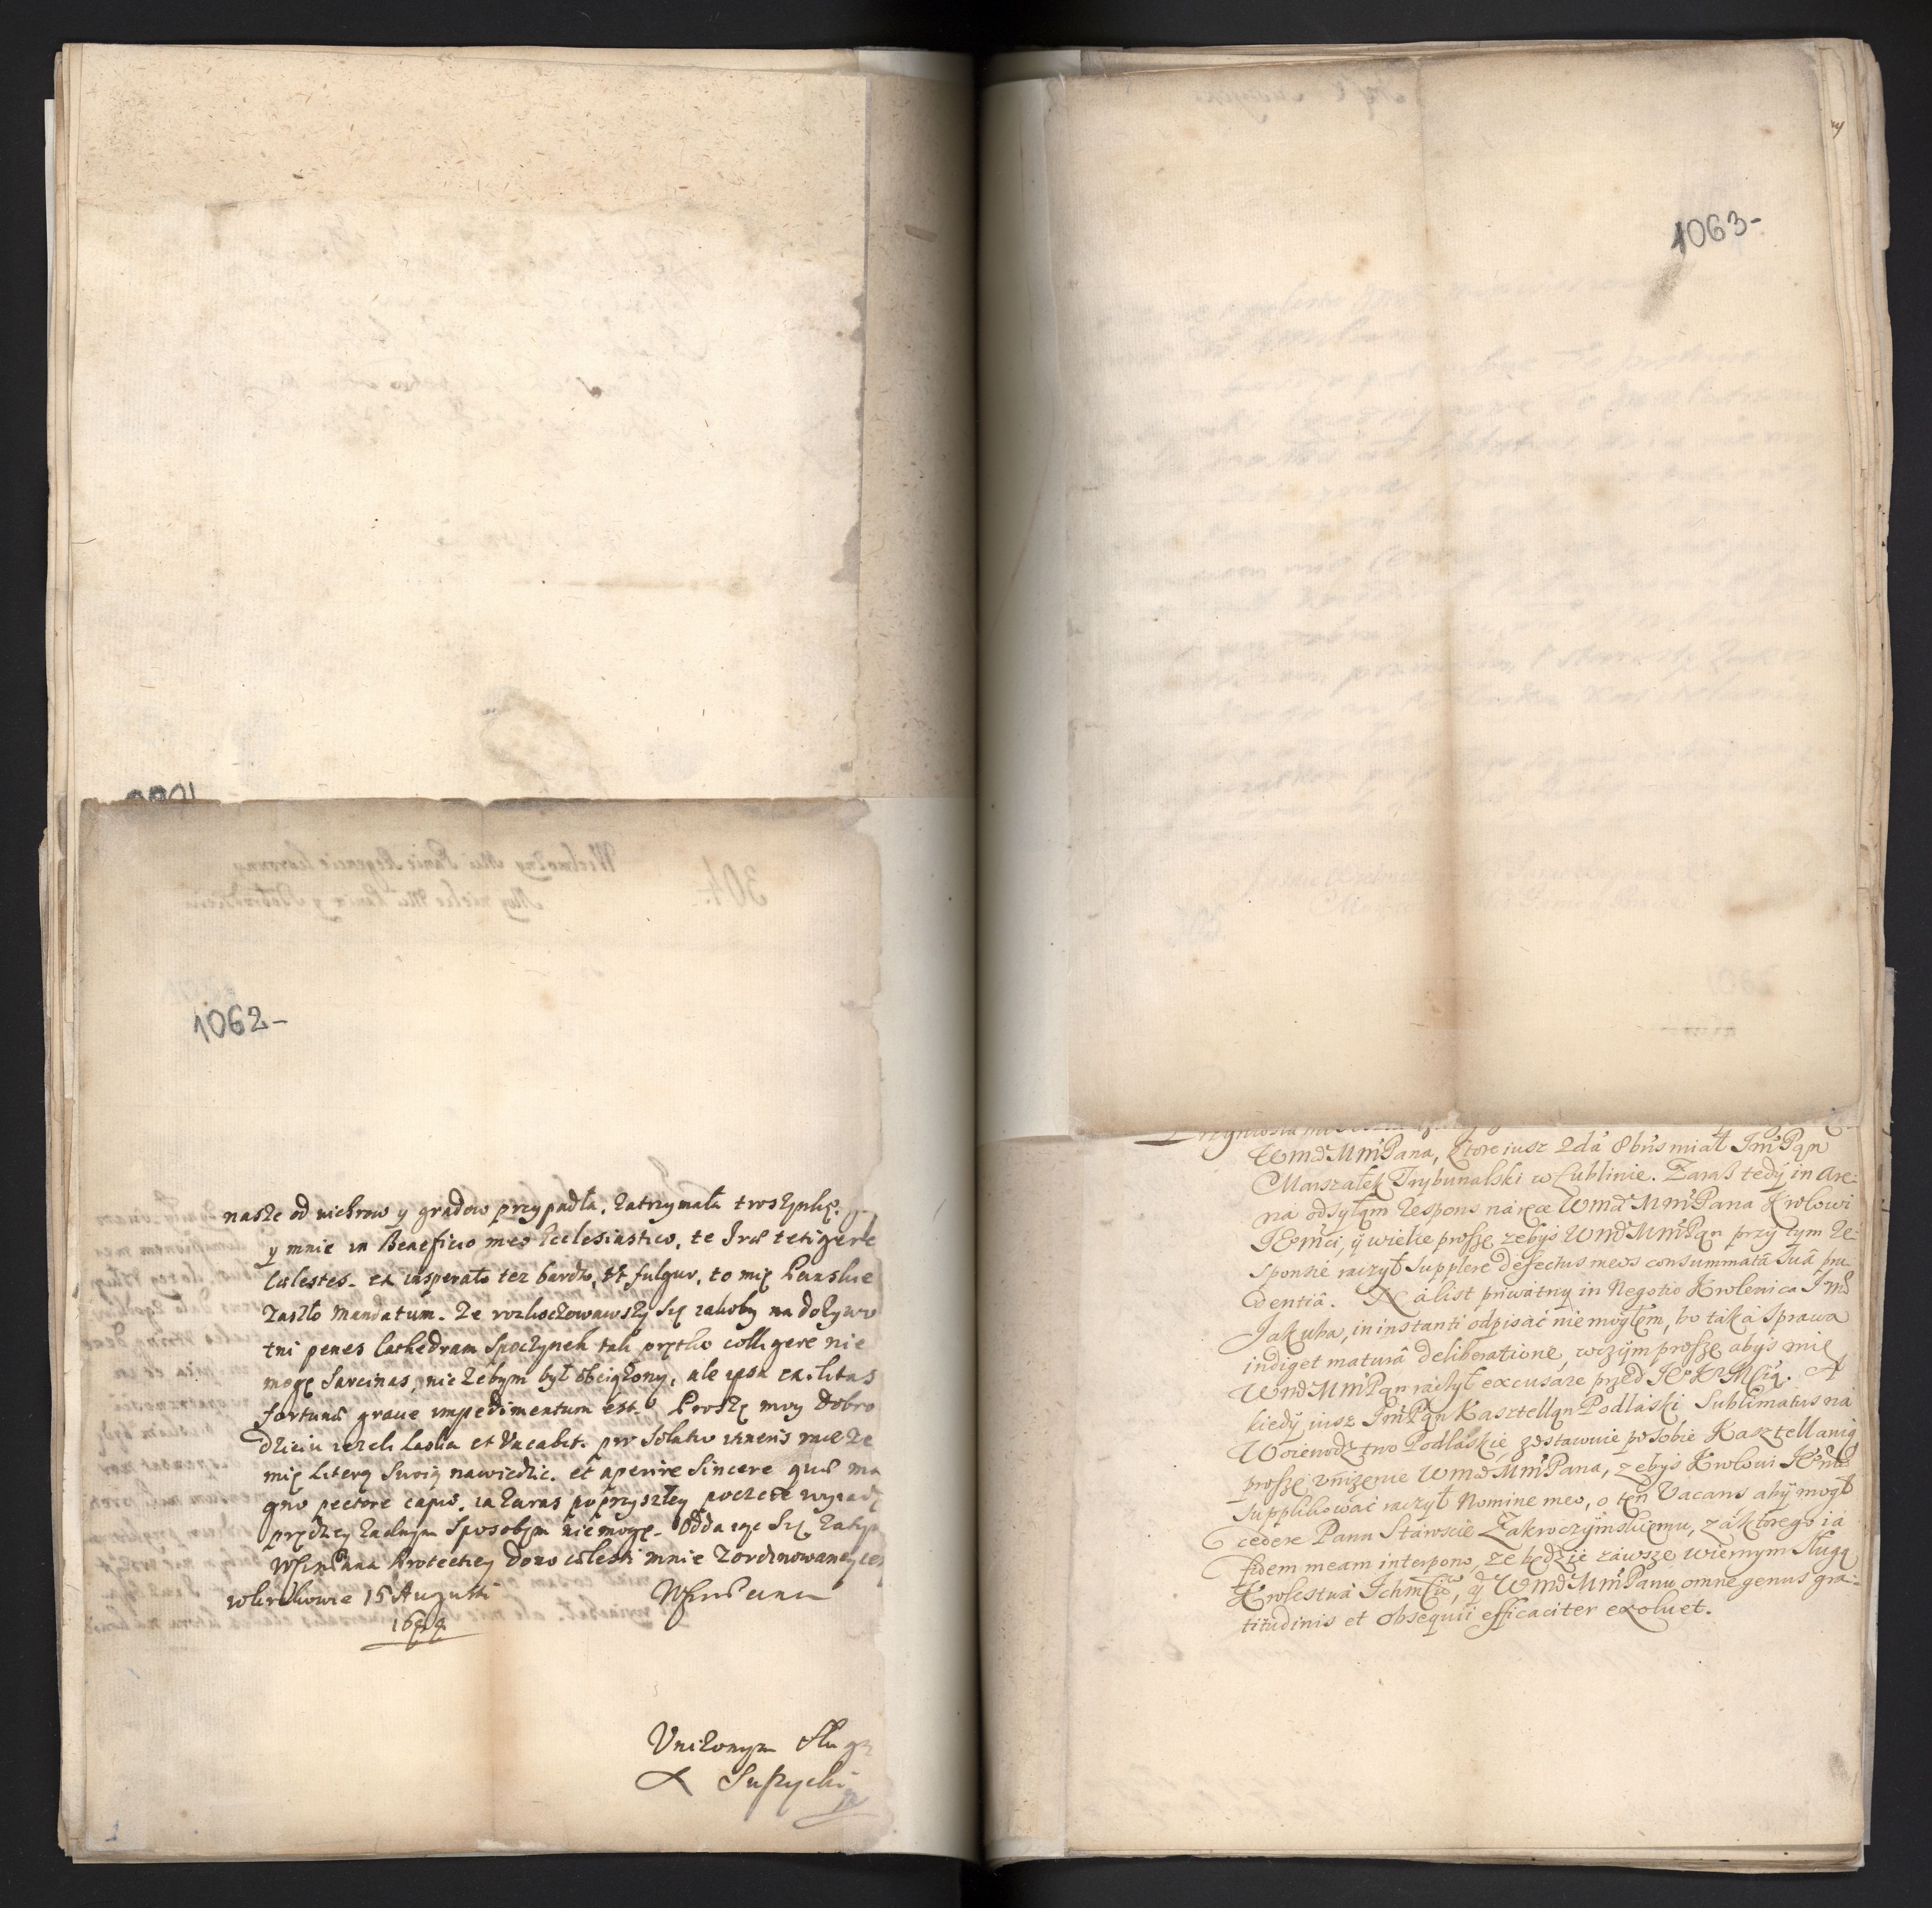 1062-
nasze od wichrow y gradow przypadła, zatrzymała troszynkę.
y mnie in Beneficio meo Ecclesiastico, te Iræ tetigere
Cælestes. Et insperato tez bardzo, Vt fulgur, to mię Panskie
zaszło Mandatum. Ze rozkoczowawszy się iakoby na dozywo
tni penes Cathedram Spoczynek tak prętko colligere nie
mogę Sarcinas, nie zebym był obciązony, ale ipsa exilitas
fortunæ graue impedimentum est. Proszę moy Dobro
dzieiu iezeli Casha et Vacabit. pro Solatio itineris mei ze
mię literą Swoią nawiedzic. et aperire Sincere quæ ma
gno pectore capis. ia zaras po przyszłey poczcie wyiadę
prędzey zadnym Sposobem niemogę. Oddaięc Się zatym
WMPana Protectiey Dono cælesti mnie zordinowaney
w Krakowie 15 Augusti
1699
WMPana
Vnizonym Sługą
A Suszycki
1063-
WmdMMPana, ktore iusz 2da 8bris miał JmPąn
Marszałek Trybunalski w Lublinie. Zaraß tedÿ in Are-
na odsyłąm Respons ná ręce WmdMMPana Krolowi
JEmci, ÿ wielie proszę zebyś WmdMMPąn przÿ tym Re-
sponsie raczył Supplere defectus meos consummatâ Suâ pru-
dentiâ. Ná list priwatnÿ in Negotio Krolewica Jmci
Jakuba, in instanti odpisać nie mogłem, bo táká Sprawa
indiget maturâ deliberatione, wczÿm proszę abyś mie
WmdMMPąn raczył excusare przed JEKMCią. A
kiedÿ iusz JmPąn Kasztelląn Podláski Sublimatus ná
Woiewodztwo Podlaskie zostawuie po sobie Kasztellanią
proszę vniżenie WmdMMPana, zebys Krolowi JEmci
supplikowáć raczył Nomine meo, o ten Vacans abÿ mogł
cedere Panu Stároscie Zakroczÿmskiemu, zá ktorego ia
fidem meam interpono, ze będzie záwsze wiernym sługą
Krolestwá Ichmściow, ÿ WmdMMPanu omne genus gra-
titudinis et obsequii efficaciter exoluet.